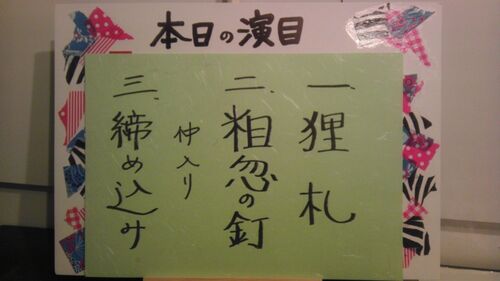 本日の演目
一、狸札
二、粗忽の釘
仲入り
三、締め込み